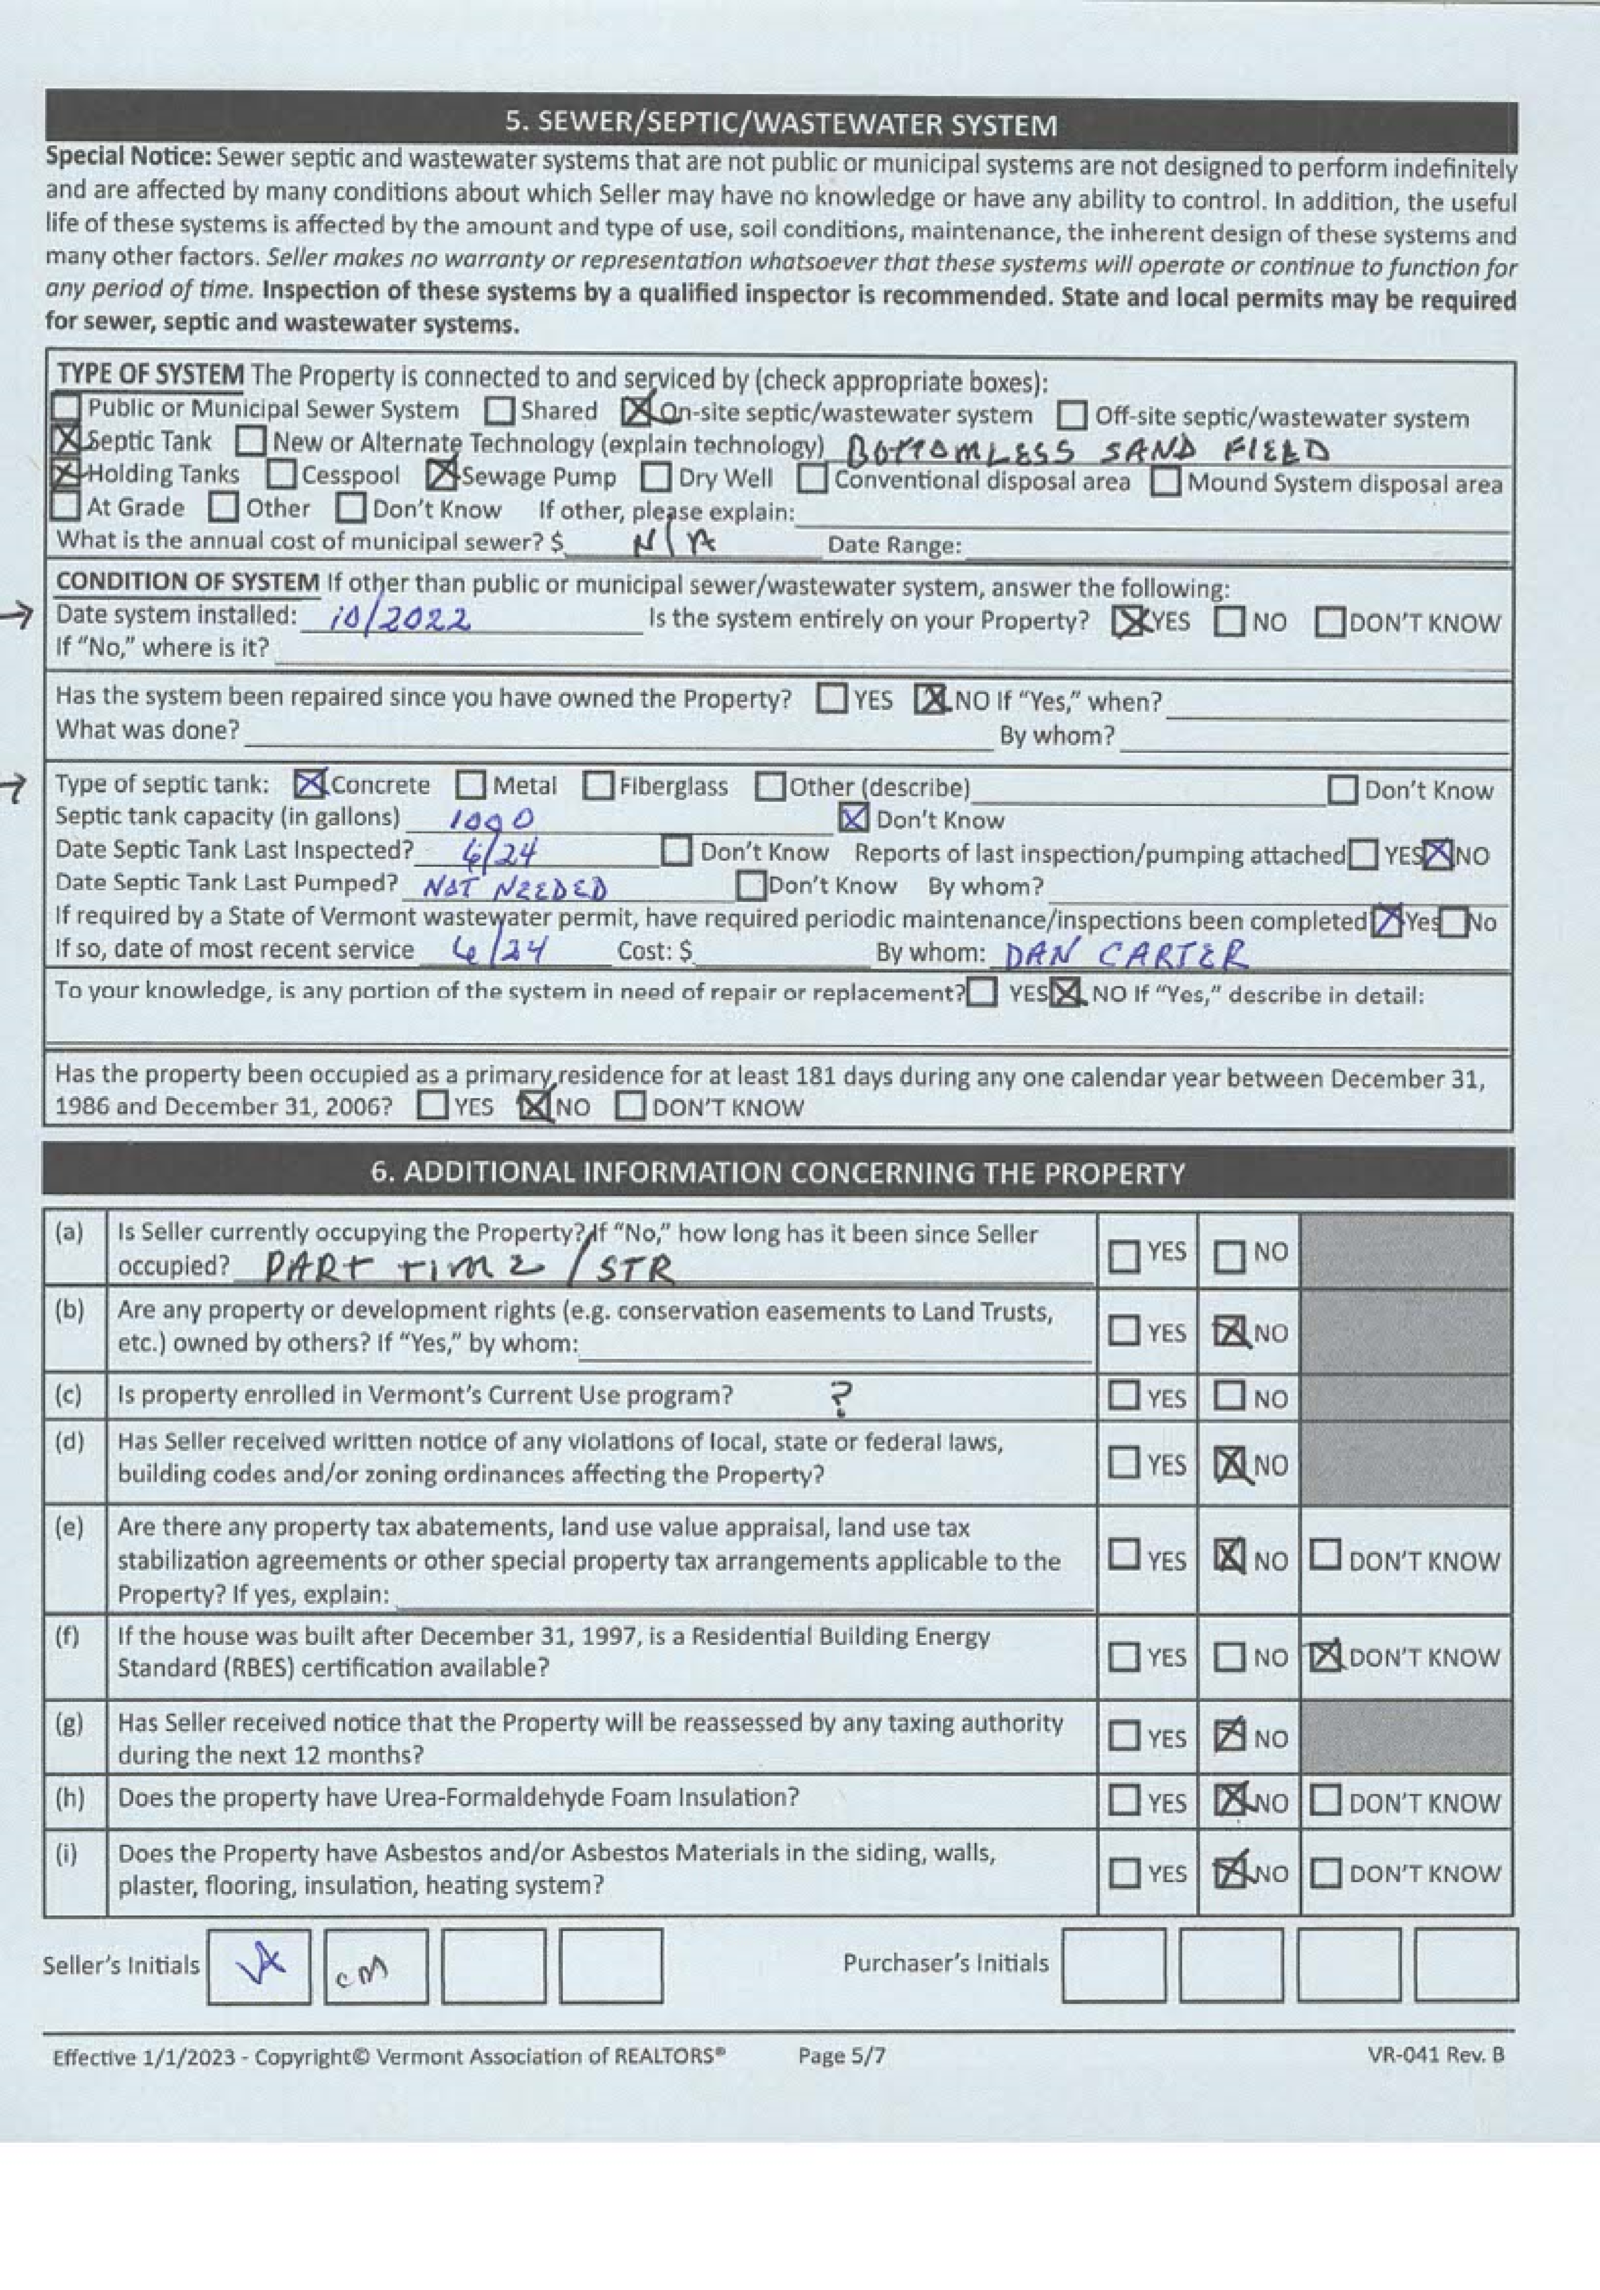 5. SEWER/SEPTIC/WASTEWATER SYSTEM
Special Notice: Sewer septic and wastewater systems that are not public or municipal systems are not designed to perform indefinitely
and are affected by many conditions about which Seller may have no knowledge or have any ability to control. In addition, the useful
life of these systems is affected by the amount and type of use, soil conditions, maintenance, the inherent design of these systems and
many other factors. Seller makes no warranty or representation whatsoever that these systems will operate or continue to function for
any period of time. Inspection of these systems by a qualified inspector is recommended. State and local permits may be required
for sewer, septic and wastewater systems.
TYPE OF SYSTEM The Property is connected to and serviced by (check appropriate boxes):
☐ Public or Municipal Sewer System ☐ Shared ☒ On-site septic/wastewater system ☐ Off-site septic/wastewater system
☒ Septic Tank ☐ New or Alternate Technology (explain technology) BOTTOMLESS SAND FIELD
☒ Holding Tanks ☐ Cesspool ☒ Sewage Pump ☐ Dry Well ☐ Conventional disposal area ☐ Mound System disposal area
☐ At Grade ☐ Other ☐ Don't Know If other, please explain:
What is the annual cost of municipal sewer? $ N/A Date Range:
CONDITION OF SYSTEM If other than public or municipal sewer/wastewater system, answer the following:
→ Date system installed: 10/2022 Is the system entirely on your Property? ☒ YES ☐ NO ☐ DON'T KNOW
If "No," where is it?
Has the system been repaired since you have owned the Property? ☐ YES ☒ NO If "Yes," when?
What was done? By whom?
→ Type of septic tank: ☒ Concrete ☐ Metal ☐ Fiberglass ☐ Other (describe) ☐ Don't Know
Septic tank capacity (in gallons) 1000 ☒ Don't Know
Date Septic Tank Last Inspected? 6/24 ☐ Don't Know Reports of last inspection/pumping attached ☐ YES ☒ NO
Date Septic Tank Last Pumped? NOT NEEDED ☐ Don't Know By whom?
If required by a State of Vermont wastewater permit, have required periodic maintenance/inspections been completed ☒ Yes ☐ No
If so, date of most recent service 6/24 Cost: $ By whom: DAN CARTER
To your knowledge, is any portion of the system in need of repair or replacement? ☐ YES ☒ NO If "Yes," describe in detail:
Has the property been occupied as a primary residence for at least 181 days during any one calendar year between December 31,
1986 and December 31, 2006? ☐ YES ☒ NO ☐ DON'T KNOW
6. ADDITIONAL INFORMATION CONCERNING THE PROPERTY
(a) Is Seller currently occupying the Property? If "No," how long has it been since Seller
occupied? PART TIME / STR ☐ YES ☐ NO
(b) Are any property or development rights (e.g. conservation easements to Land Trusts,
etc.) owned by others? If "Yes," by whom: ☐ YES ☒ NO
(c) Is property enrolled in Vermont's Current Use program? ? ☐ YES ☐ NO
(d) Has Seller received written notice of any violations of local, state or federal laws,
building codes and/or zoning ordinances affecting the Property? ☐ YES ☒ NO
(e) Are there any property tax abatements, land use value appraisal, land use tax
stabilization agreements or other special property tax arrangements applicable to the ☐ YES ☒ NO ☐ DON'T KNOW
Property? If yes, explain:
(f) If the house was built after December 31, 1997, is a Residential Building Energy
Standard (RBES) certification available? ☐ YES ☐ NO ☒ DON'T KNOW
(g) Has Seller received notice that the Property will be reassessed by any taxing authority
during the next 12 months? ☐ YES ☒ NO
(h) Does the property have Urea-Formaldehyde Foam Insulation? ☐ YES ☒ NO ☐ DON'T KNOW
(i) Does the Property have Asbestos and/or Asbestos Materials in the siding, walls,
plaster, flooring, insulation, heating system? ☐ YES ☒ NO ☐ DON'T KNOW
Seller's Initials cm Purchaser's Initials
Effective 1/1/2023 - Copyright© Vermont Association of REALTORS® Page 5/7 VR-041 Rev. B